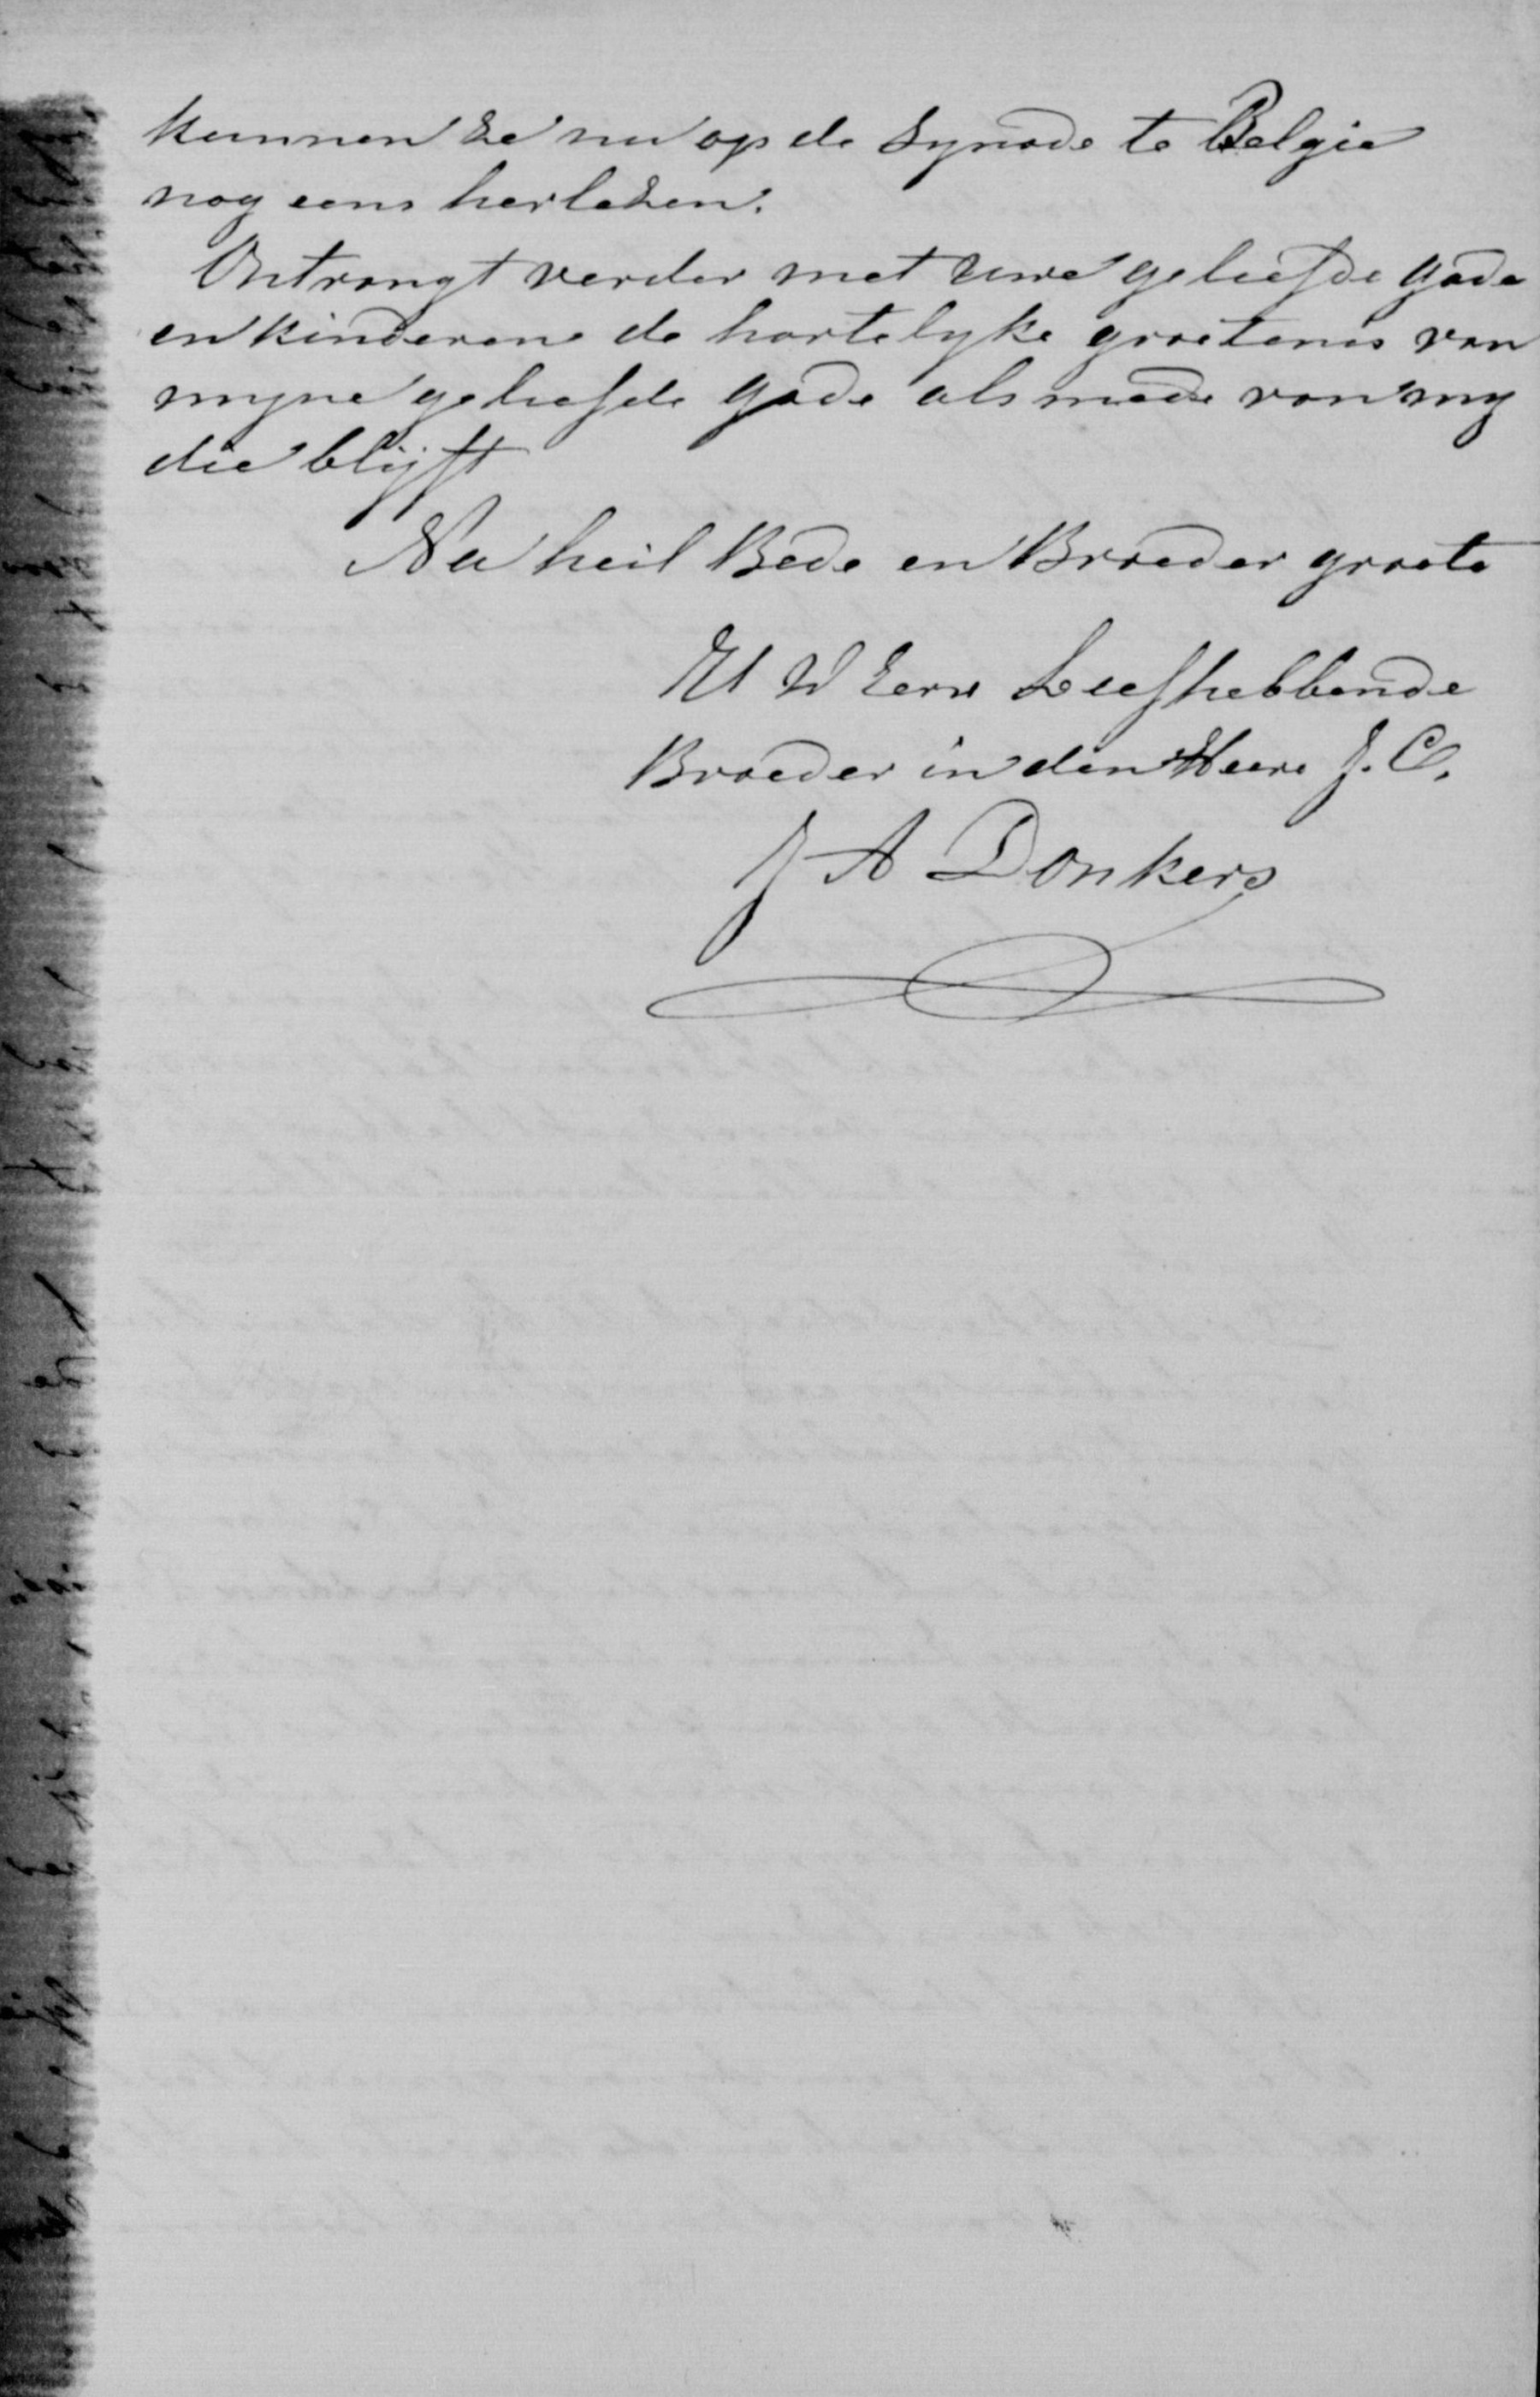 kunnen ze nu op de Synode te Belgie
nog eens herlezen.
Ontvangt verder met uwe geliefde gade
en kinderene de hartelyke groetenis van
myne geliefde gade alsmede van my
die blijft
Na heil Bede en Broeder groete
U W Eerw Liefhebbende
Broeder in den Heere J. C.
J A Donkers